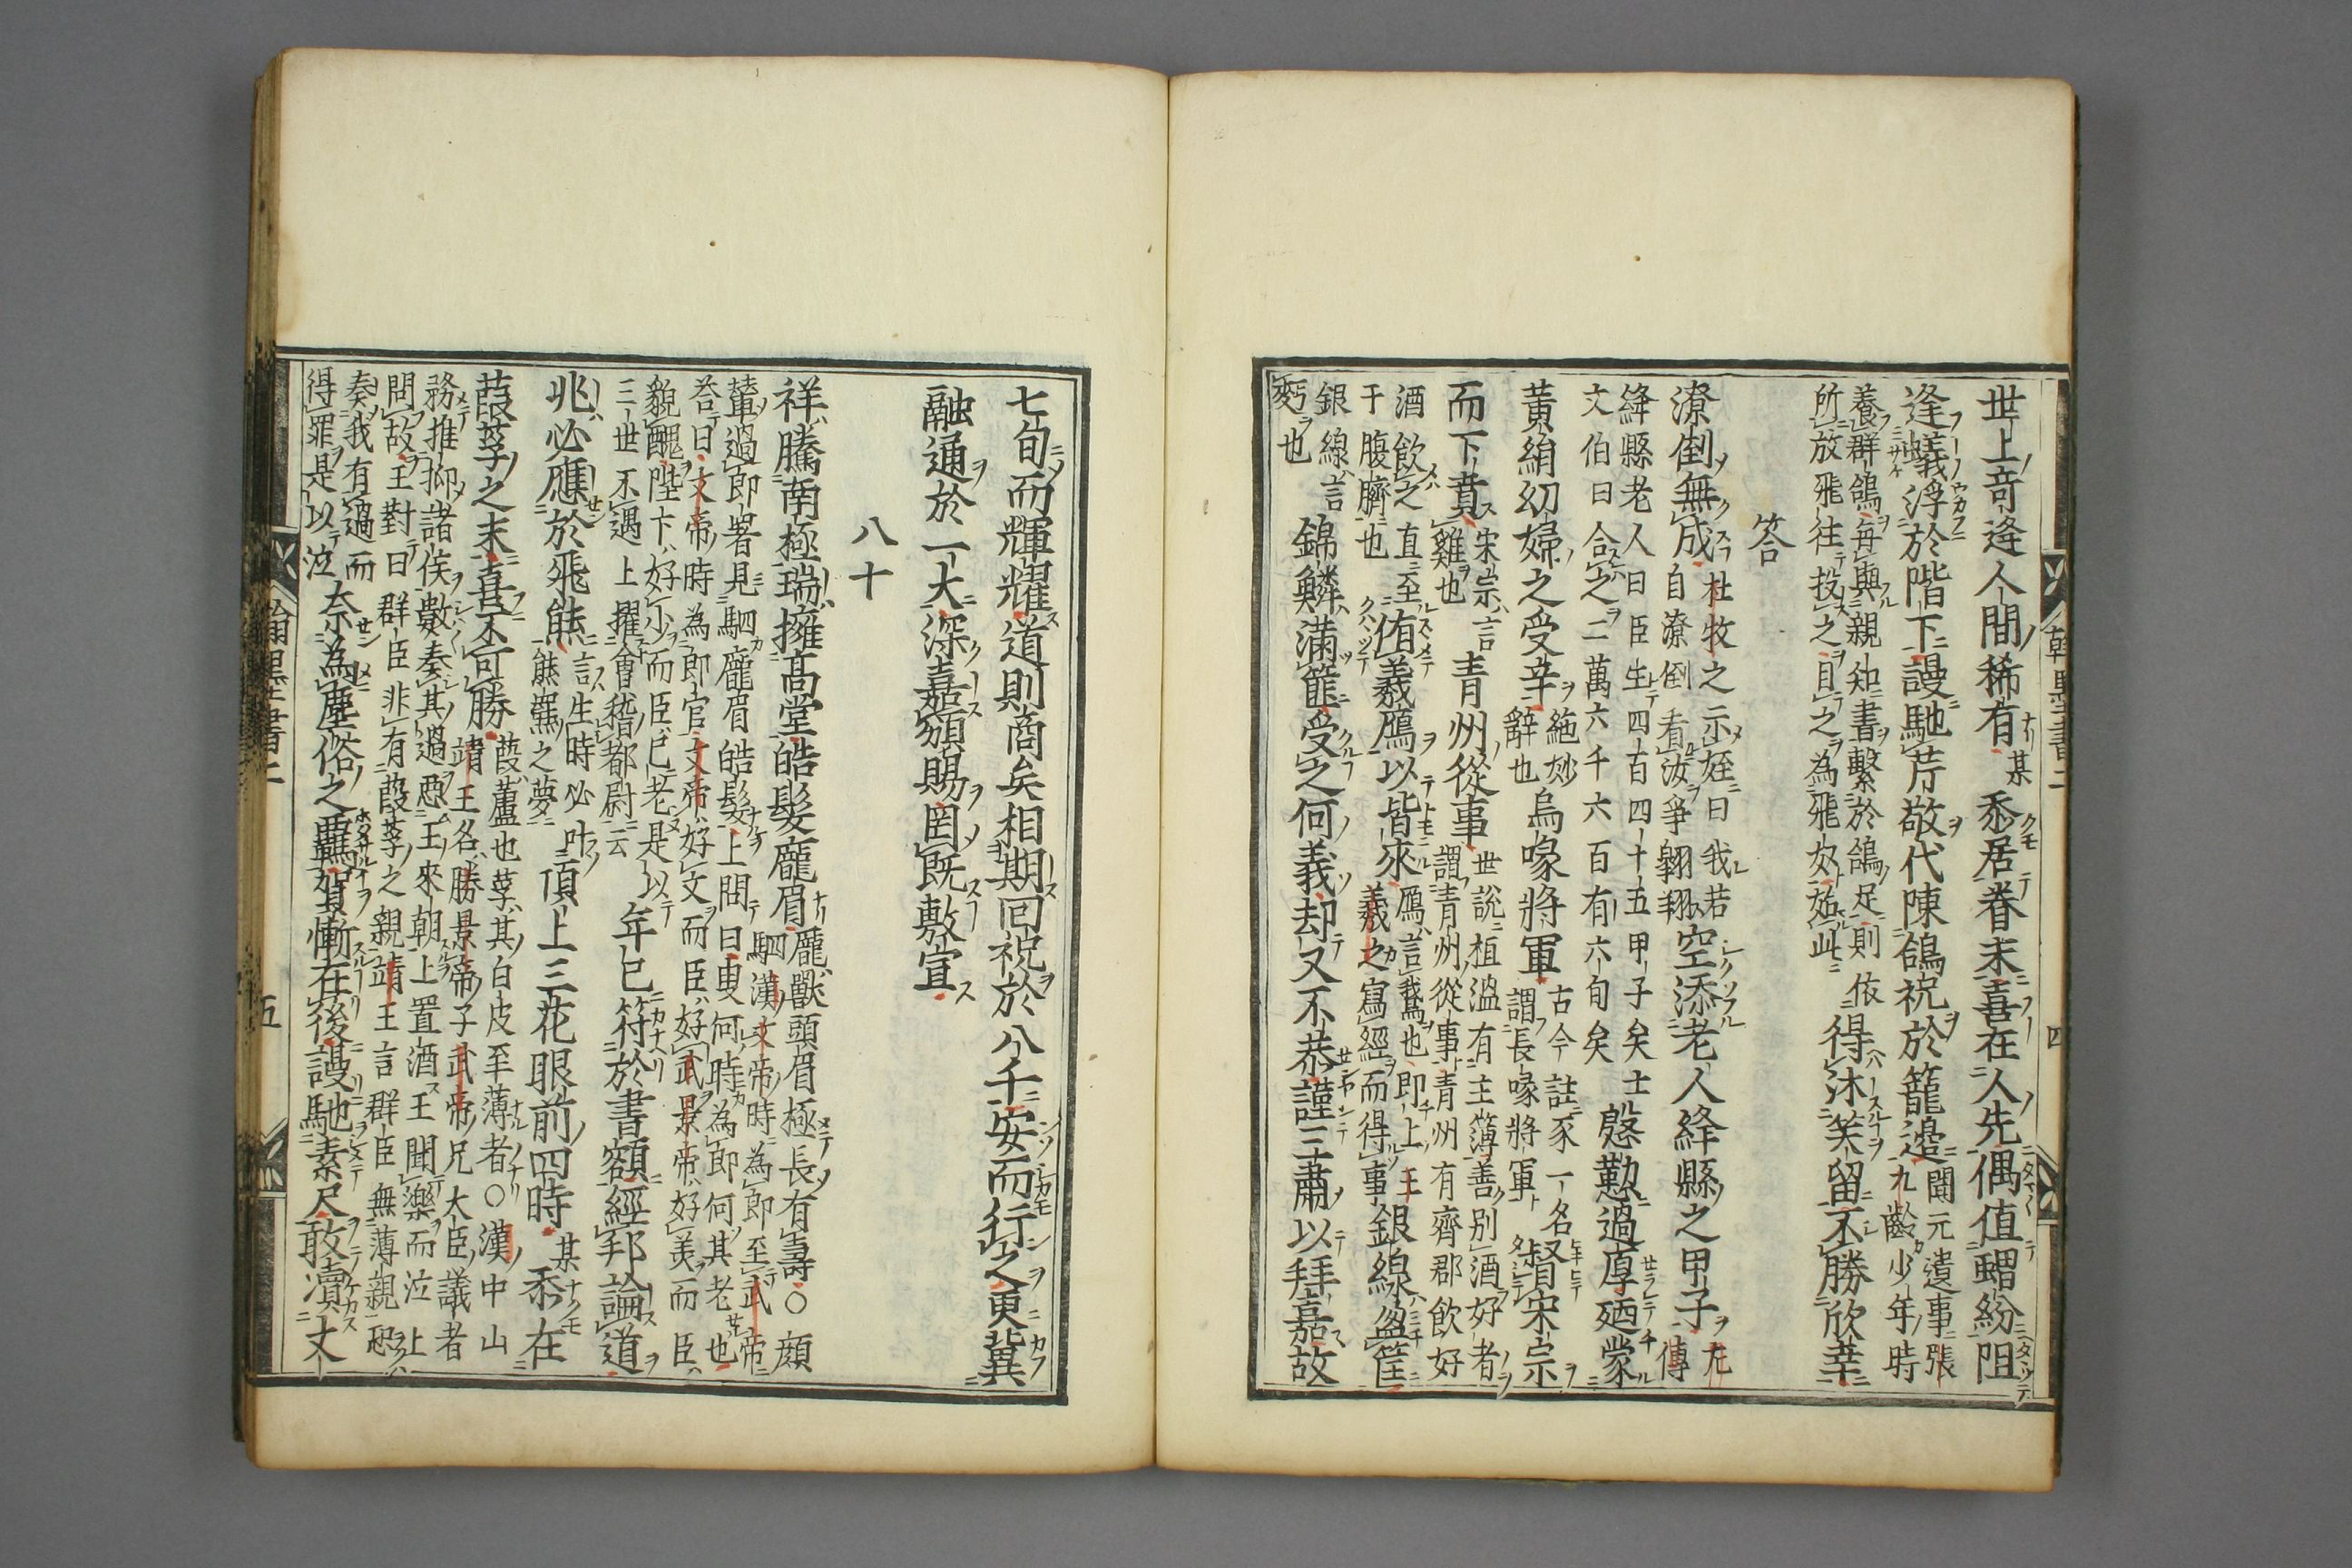 世上竒逢人間稀有某忝居眷末喜在人先偶值蝟紛阻
逢蟻浮於階下謾馳芹敬代陳鴿祝於籠邉開元遺事張九齡少年時
養群鴿毎與親知書繫於鴿足則依
所放飛往投之目之為飛奴茲此得沐笑留不勝欣幸
答
潦倒無成杜牧之示姪曰我若自潦倒看汝争翱翔空添老人絳縣之甲子左傳
絳縣老人曰臣生四百四十五甲子矣士
文伯曰合之二萬六千六百有六旬矣慇懃過厚廼蒙
黄絹幼婦之受辛絶妙辭也烏喙將軍古今註豕一名謂長喙將軍督宋宗
而下賁宋宗言雞也青州從事世說桓溫有主簿善別酒好者謂青州從事青州有齊郡飲好
酒飲之直至
于腹臍也侑羲鴈以皆來鴈言鵞也即上王羲之寫經而得事銀線盈筐
銀線言
麪也錦鱗滿篚受之何義却又不恭謹三肅以拜嘉故
翰墨書二
四
七旬而輝耀道則商矣相期回祝於八千安而行之更冀
融通於一大深嘉頒賜罔既敷宣
八十
祥騰南極瑞擁髙堂皓髮龐眉龐厭頭眉極長有壽○顔駟漢文帝時為郎至武帝
輦過郎署見駟龐眉皓髮上問曰叟何時為郎何其老也
荅曰文帝時為郎官文帝好文而臣好武景帝好美而臣
貌醜陛下好少而臣已老是以
三世不遇上擢會稽都尉云年已符於書額經邦論道
兆必應於飛熊言生時必叶熊羆之夢頂上三花眼前四時某忝在
葭莩之末喜不可勝葭蘆也莩其白皮至薄者○漢中山靖王名勝景帝子武帝兄大臣議者
務推抑諸侯數奏其過惡王來朝上置酒王聞樂而泣上
問故王對曰群臣非有葭莩之親靖王言群臣無薄親
奏我有過而
得罪是以泣奈為塵俗之羈賀慚在後謾馳素尺敢凟丈
翰墨書二
五